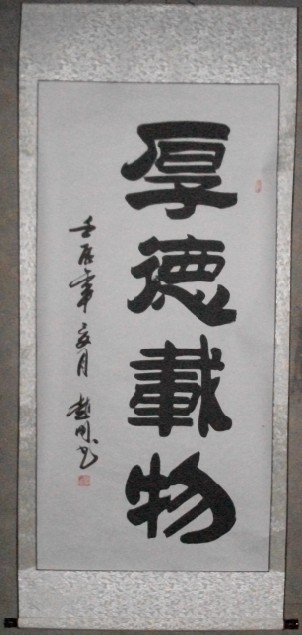 厚德載物
壬辰年夏月